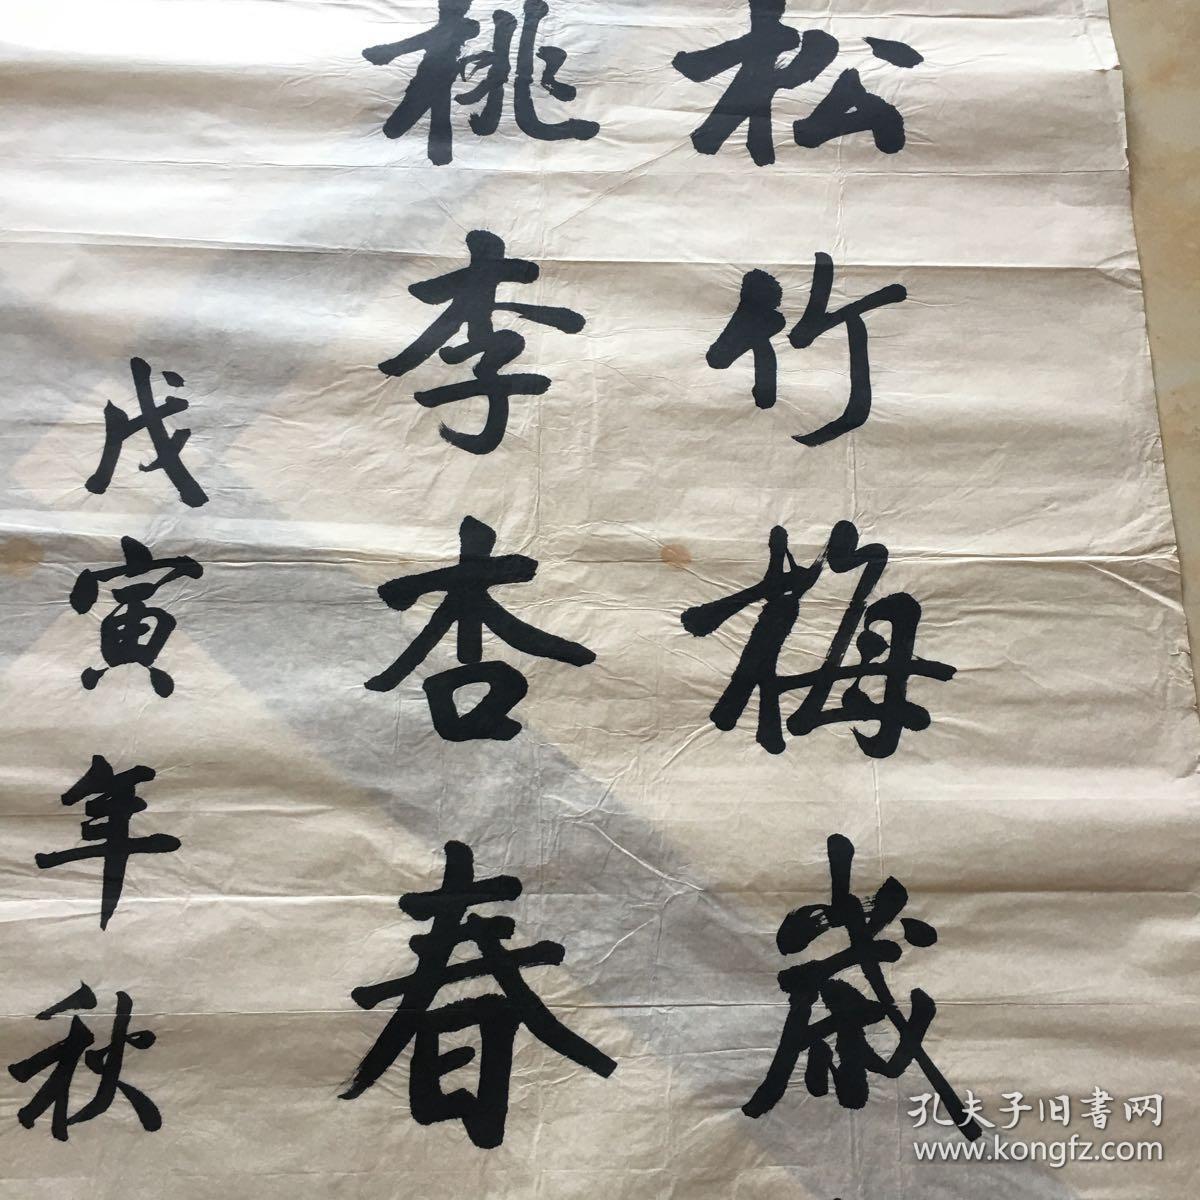 松竹梅歲
桃李杏春
戊寅年秋
孔夫子旧書网
www.kongfz.com